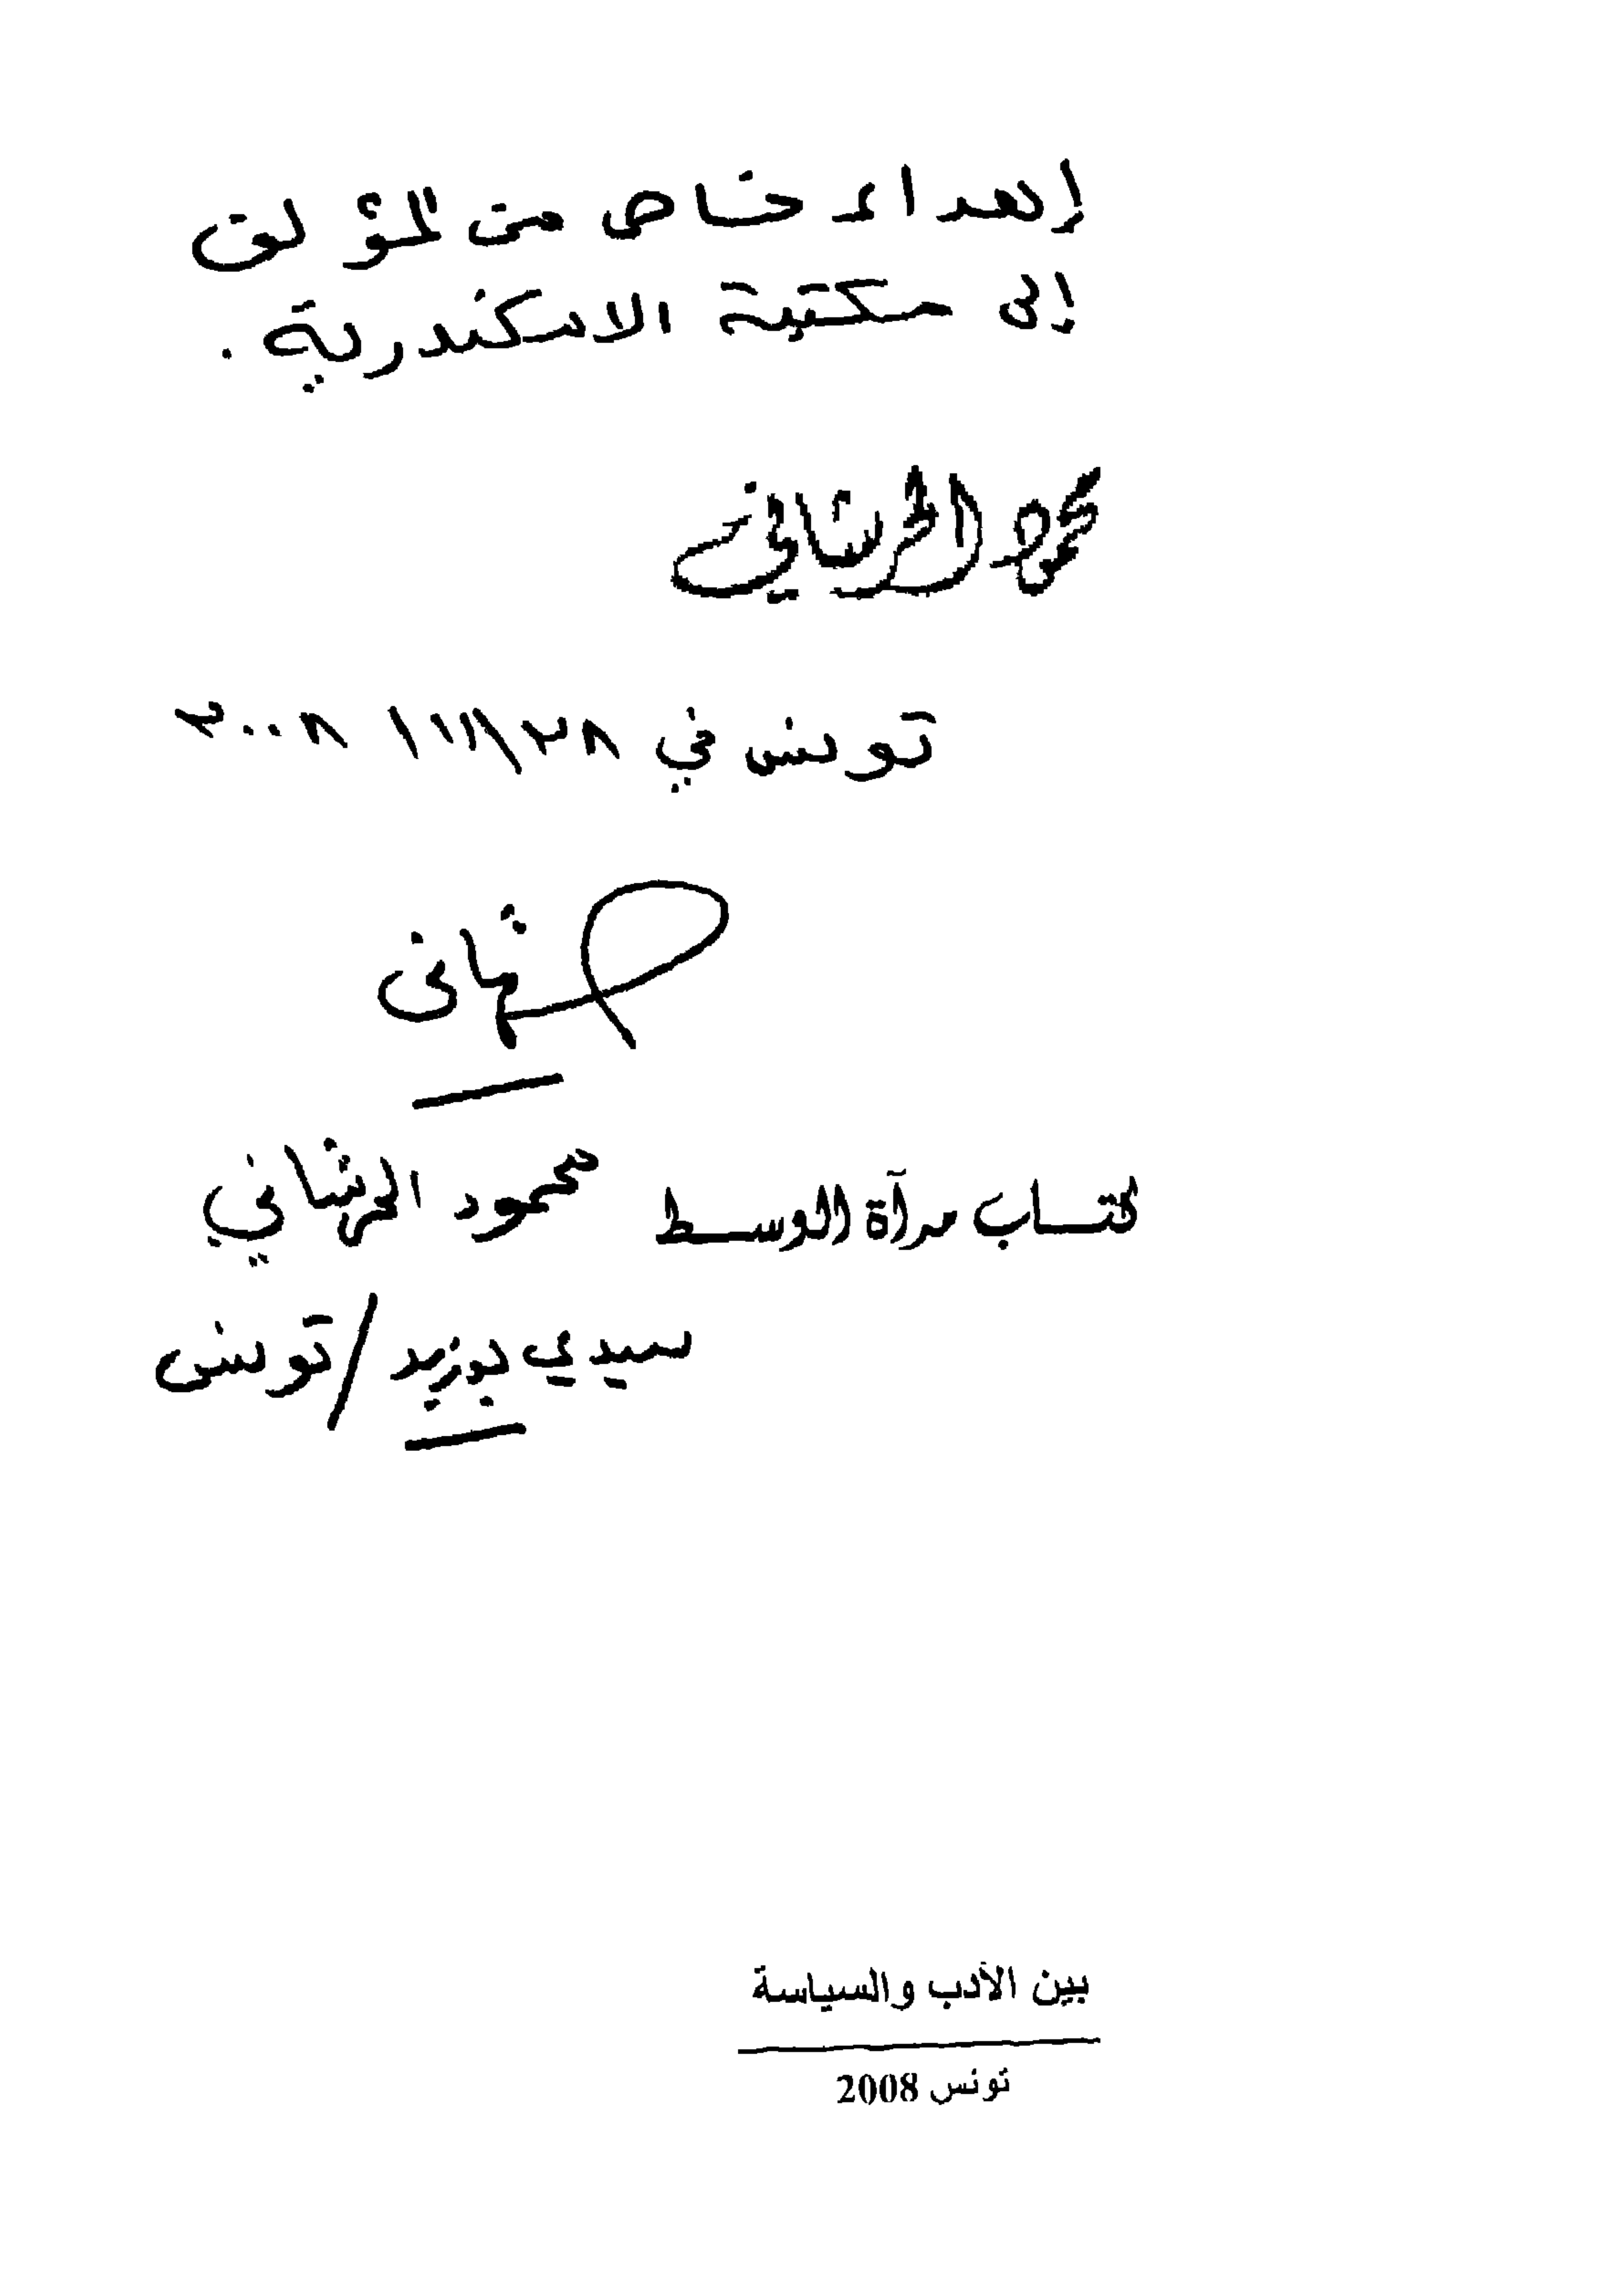 إهداء خاص من المؤلف
إلى مكتبة الاسكندرية .
محمود الحرشاني
تونس في ٢٨/١١/ ٢٠٠٨
كتاب مرآة الوسط محمود الحرشاني
سيدي بوزيد / تونس
بين الأدب والسياسة
تونس 2008